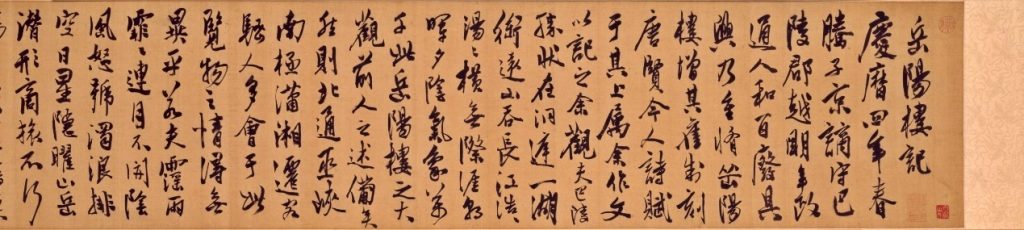 岳陽樓記
慶曆四年春
滕子京謫守巴
陵郡越明年政
通人和百廢具
興乃重脩岳陽
樓增其舊制刻
唐賢今人詩賦
于其上屬余作文
以記之余觀夫巴陵
勝狀在洞庭一湖
銜遠山吞長江浩
湯〻橫無際涯朝
暉夕陰氣象萬
千此岳陽樓之大
觀前人之述備矣
然則北通巫峽
南極瀟湘遷客
騷人多會于此
覽物之情得無
異乎若夫霪雨
霏〻連月不開陰
風怒號濁浪排
空日星隱曜山岳
潛形商旅不行